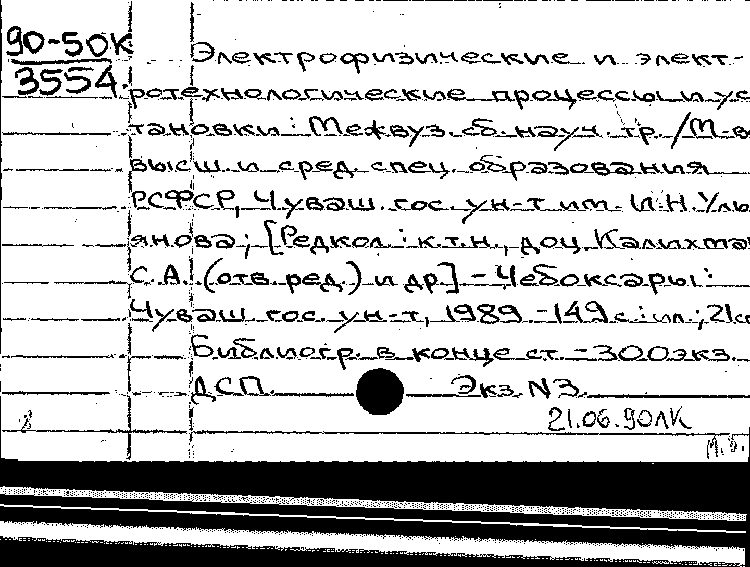 90-50К
3554.
Электрофизические и элект-
ротехнологические процессы и ус
тановки : Межвуз. сб. науч. тр. / М-в
высш и сред. спец. образования
РСФСР, Чуваш. гос. ун-т им. И.Н. Уль
янова; [Редкол : к.т.н., доц. Калихма
С.А. (отв. ред.) и др.] - Чебоксары :
Чуваш гос. ун-т, 1989 - 149 с. : ил.; 21с
Библиогр. в конце ст. - 300 экз.
ДСП. Экз. N3.
21.06.90ЛК